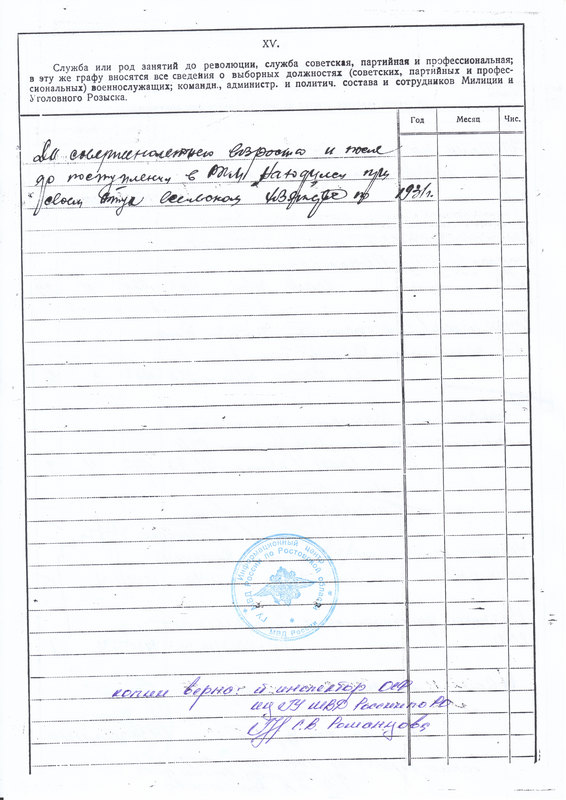 XV.
Служба или род занятий до революции, служба советская, партийная и профессиональная;
в эту же графу вносятся все сведения о выборных должностях (советских, партийных и профес-
сиональных) военнослужащих; командн., администр. и политич. состава и сотрудников Милиции и
Уголовного Розыска.
Год Месяц Чис.
До совершеннолетнего возроста и после
до поступления в РКМ находился при
своем отце в сельском хозяйстве по 1931г.
Информационный центр
ГУ МВД России по Ростовской области
МВД России
копия верна инспектор
ИЦ ГУ МВД России по РО
С.В. Романцова